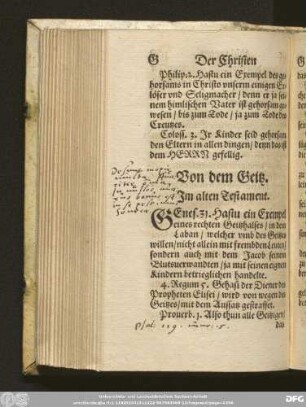 G Der Christen
Philip. 2. Hastu ein Exempel des ge-
horsams in Christo unserm einigen Er-
löser und Seligmacher / denn er ja sei-
nem himlischen Vater ist gehorsam ge-
wesen / bis zum Tode / ja zum Tode des
Creutzes.
Coloss. 3. Ir Kinder seid gehorsam
den Eltern in allen dingen / denn das ist
dem HERRN gefellig.
Von dem Geitz.
Im alten Testament.
GEnes. 31. Hastu ein Exempel
eines rechten Geitzhalses / in dem
Laban / welcher umb des Geitzes
willen / nicht allein mit frembden Leuten /
sondern auch mit dem Jacob seinen
Blutsverwandten / ja mit seinen eigenen
Kindern betrieglichen handelte.
4. Regum 5. Gehasi der Diener des
Propheten Elisei / wird von wegen des
Geitzes / mit dem Aussatz gestraffet.
Proverb. 1. Also thun alle Geitzige /
das
psal. 119.